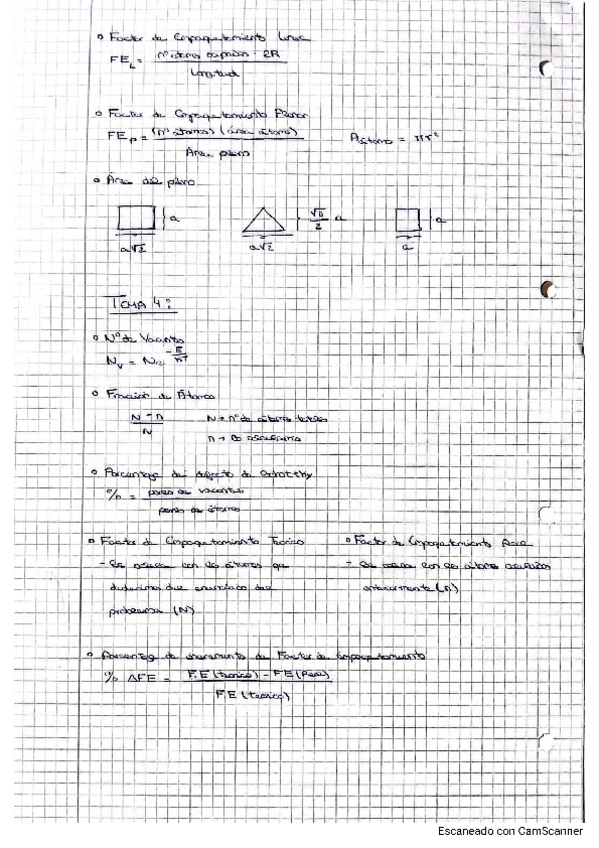 o Factor de Empaquetamiento Lineal
FE_L = nº átomos · 2R
Longitud
o Factor de Empaquetamiento Planar
FE_P = (nº átomos) (área átomo)
Área plano
A átomo = πr²
o Área del plano
a
a√2
√6/2 a
a√2
a
a
TEMA 4:
o Nº de Vacantes
N_V = N
o Fracción de Átomos
N - n
N
N → nº de átomos totales
n →
o Porcentaje de defecto de Schottky
% = pares de vacantes
pares de átomos
o Factor de Empaquetamiento Teórico
- Se calcula con los átomos que
deducimos del enunciado del
problema (N)
o Factor de Empaquetamiento Real
- Se calcula con los átomos
(n)
o Porcentaje de incremento de Factor de Empaquetamiento
% ΔFE = F.E (teórico) - FE (Real)
F.E (teórico)
Escaneado con CamScanner